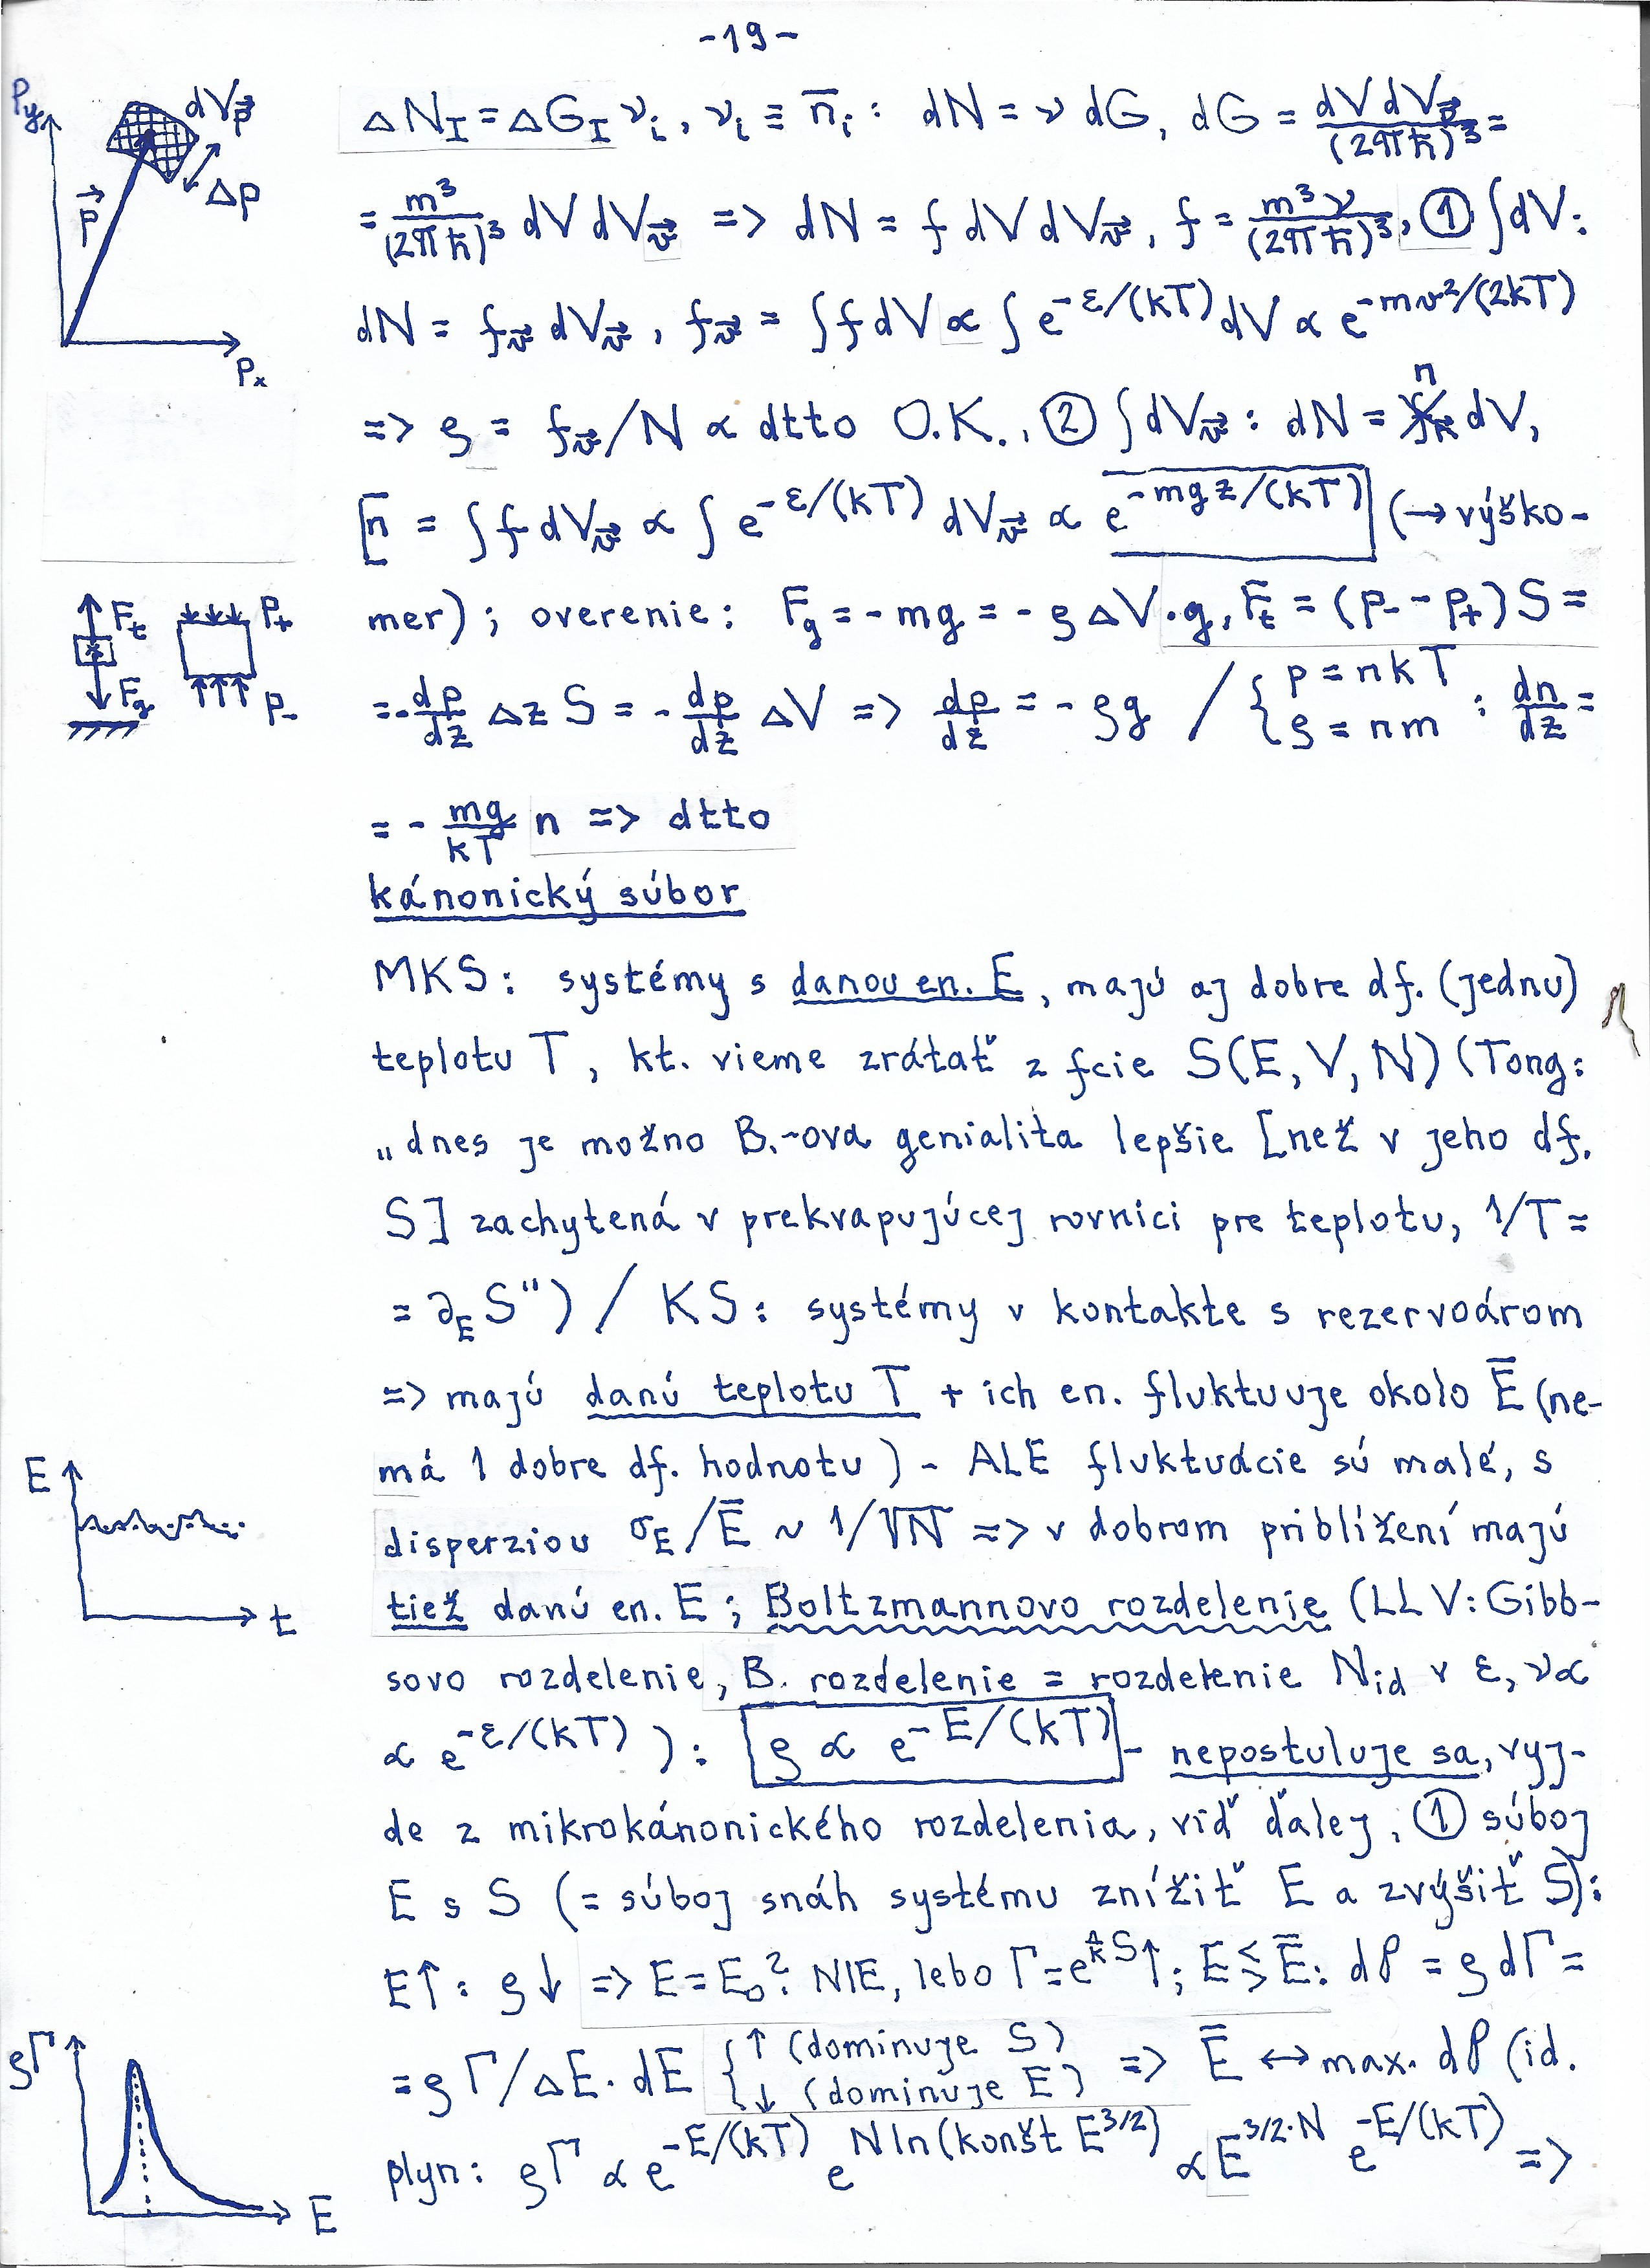 -19-
P_y dV_p⃗ p⃗ Δp P_x
ΔN_I = ΔG_I ν_i, ν_i ≡ n̄_i : dN = ν dG, dG = dV dV_p⃗/(2πħ)³ =
= m³/(2πħ)³ dV dV_v⃗ => dN = f dV dV_v⃗, f = m³ν/(2πħ)³, ① ∫dV:
dN = f_v⃗ dV_v⃗, f_v⃗ = ∫f dV ∝ ∫e^{-ε/(kT)} dV ∝ e^{-mv²/(2kT)}
=> ρ = f_v⃗/N ∝ dtto O.K., ② ∫dV_v⃗ : dN = n dV,
[n = ∫f dV_v⃗ ∝ ∫e^{-ε/(kT)} dV_v⃗ ∝ e^{-mgz/(kT)}] (→výško-
F_t F_g p_+ p_-
mer); overenie: F_g = -mg = -ρΔV·g, F_t = (p_- - p_+)S =
= -dp/dz Δz S = -dp/dz ΔV => dp/dz = -ρg / {p = nkT ρ = nm : dn/dz =
= - mg/kT n => dtto
kánonický súbor
MKS: systémy s danou en. E, majú aj dobre df. (jednu)
teplotu T, kt. vieme zrátať z fcie S(E,V,N) (Tong:
„dnes je možno B.-ova genialita lepšie [než v jeho df.
S] zachytená v prekvapujúcej rovnici pre teplotu, 1/T =
= ∂_E S") / KS: systémy v kontakte s rezervoárom
=> majú danú teplotu T + ich en. fluktuuje okolo Ē (ne-
má 1 dobre df. hodnotu) - ALE fluktuácie sú malé, s
E t
disperziou σ_E/Ē ~ 1/√N => v dobrom priblížení majú
tiež danú en. E; Boltzmannovo rozdelenie (LL V: Gibb-
sovo rozdelenie, B. rozdelenie = rozdelenie N_id v ε, ν∝
∝ e^{-ε/(kT)}): ρ ∝ e^{-E/(kT)} - nepostuluje sa, vyj-
de z mikrokánonického rozdelenia, viď ďalej, ① súboj
E s S (= súboj snáh systému znížiť E a zvýšiť S):
E↑: ρ↓ => E = E_0? NIE, lebo Γ = e^{1/k S}↑; E ≶ Ē: dP = ρ dΓ =
= ρΓ/ΔE · dE {↑ (dominuje S) ↓ (dominuje E) => Ē ↔ max. dP (id.
ρΓ E
plyn: ρΓ ∝ e^{-E/(kT)} e^{N ln(konšt E^{3/2})} ∝ E^{3/2·N} e^{-E/(kT)} =>